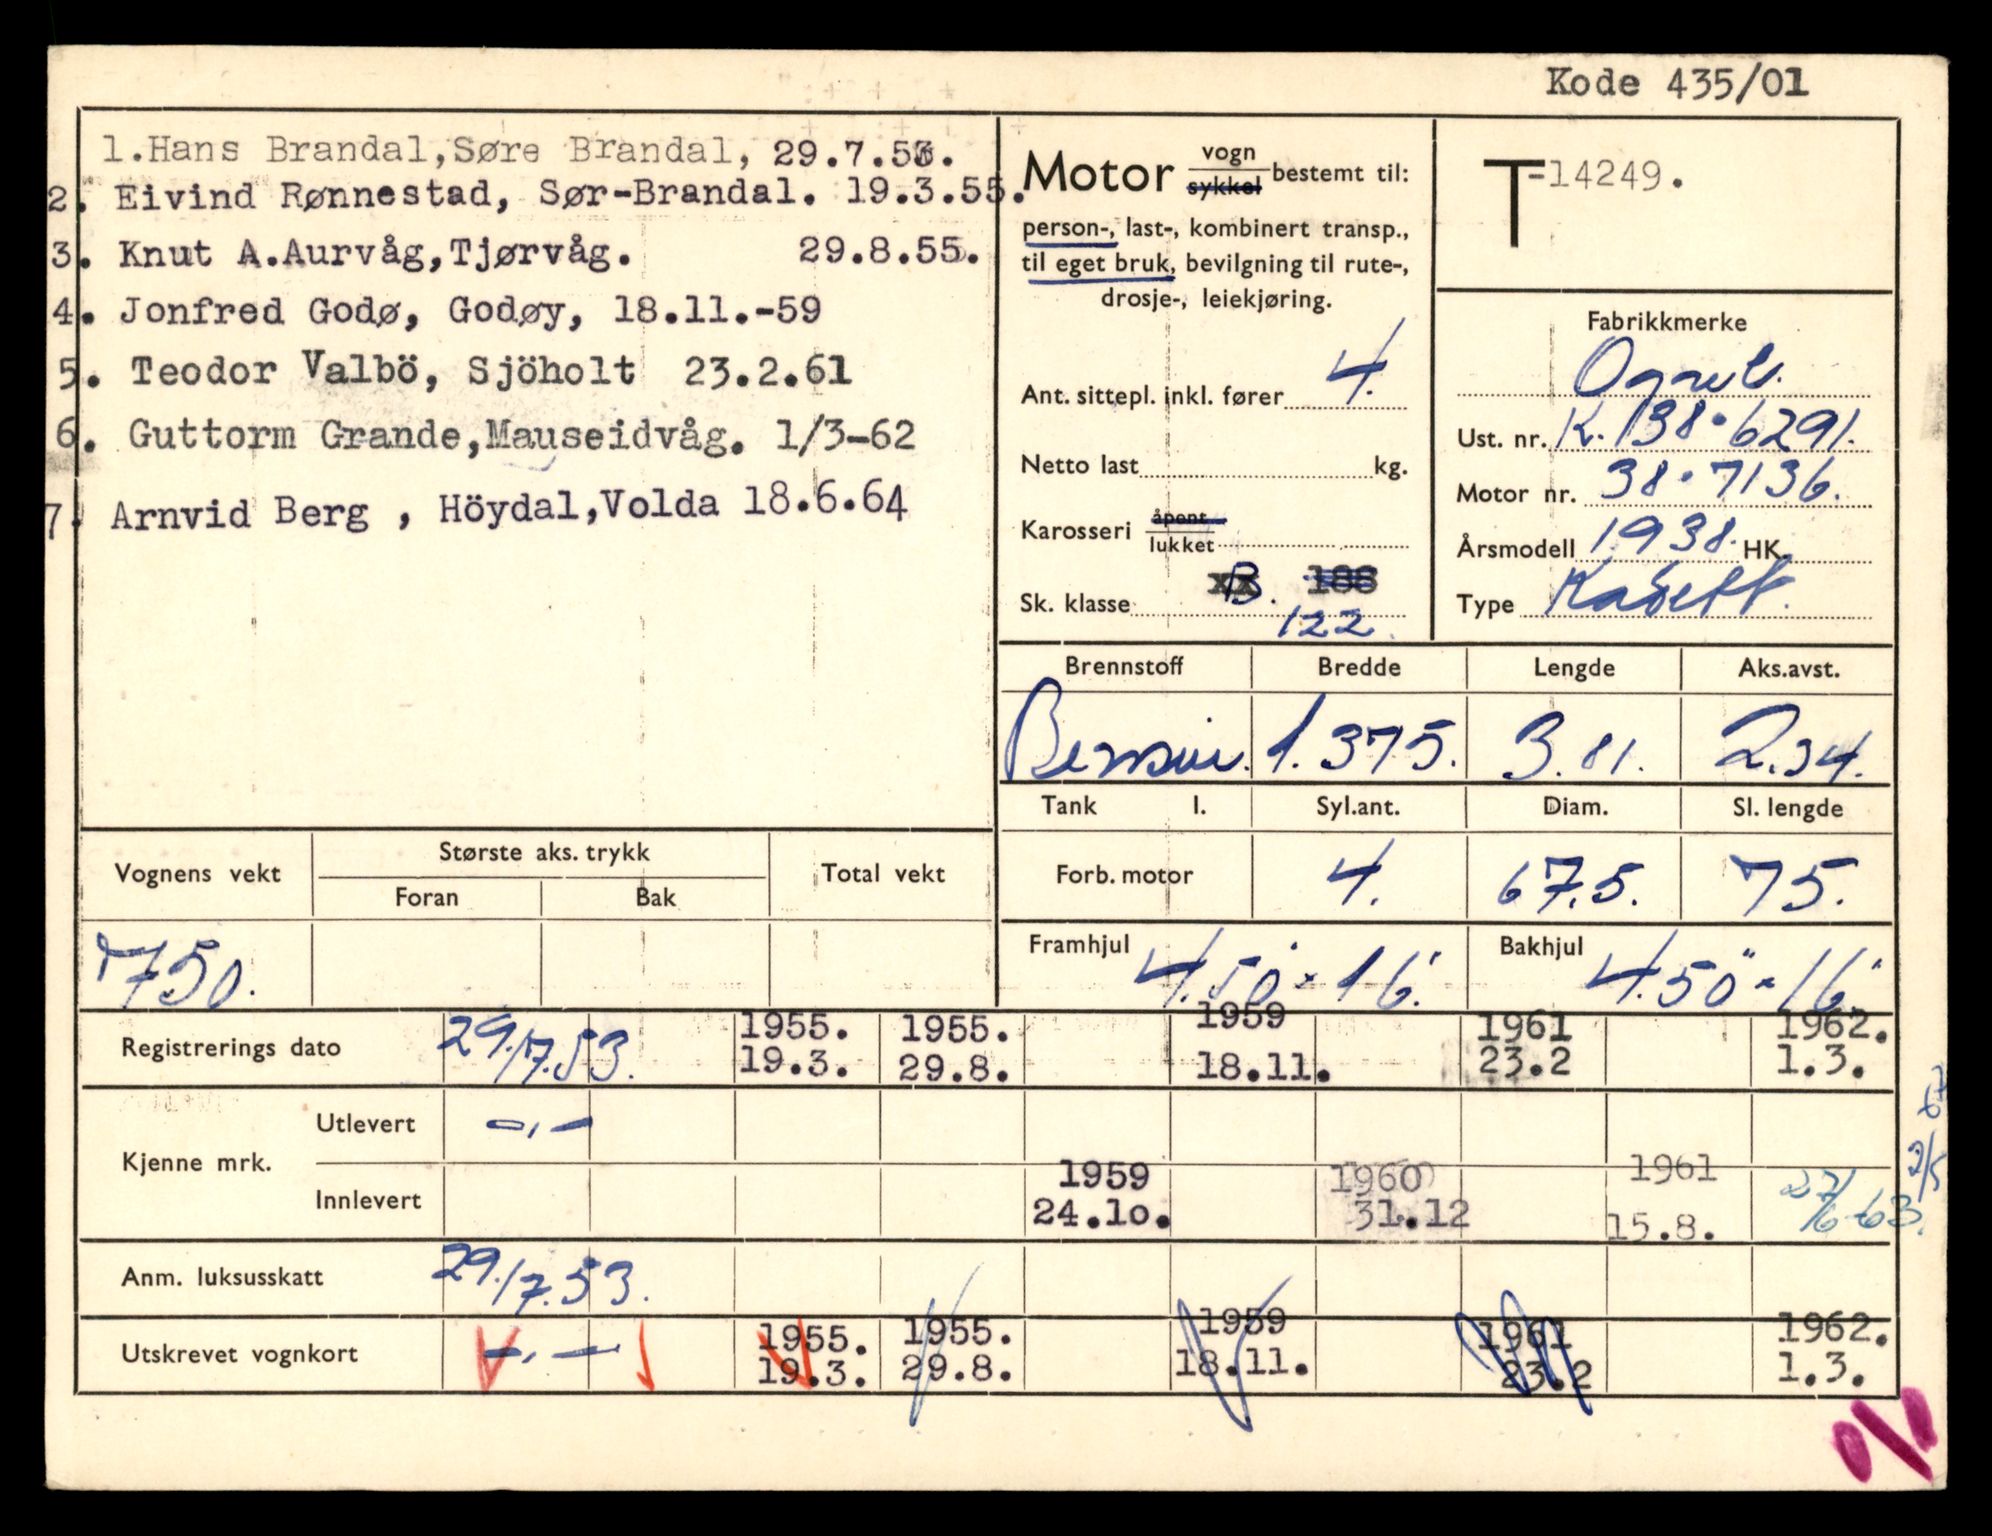 Kode 435/01
1.Hans Brandal,Søre Brandal, 29.7.53.
2. Eivind Rønnestad, Sør-Brandal. 19.3.55.
3. Knut A.Aurvåg,Tjørvåg. 29.8.55.
4. Jonfred Godø, Godøy, 18.11.-59
5. Teodor Valbö, Sjöholt 23.2.61
6. Guttorm Grande,Mauseidvåg. 1/3-62
7. Arnvid Berg , Höydal,Volda 18.6.64
Motor vogn sykkel bestemt til:
person-, last-, kombinert transp.,
til eget bruk, bevilgning til rute-,
drosje-, leiekjøring.
Ant. sittepl. inkl. fører 4.
Netto last kg.
Karosseri åpent lukket
Sk. klasse B. 188
122.
T-14249.
Fabrikkmerke
Ust. nr. K.138-6291.
Motor nr. 38-7136.
Årsmodell 1938. HK.
Type Kadett.
Brennstoff Bredde Lengde Aks.avst.
Bensin. 1.375. 3.81. 2.34.
Tank l. Syl.ant. Diam. Sl. lengde
Forb. motor 4. 67.5. 75.
Framhjul 4.50" x 16" Bakhjul 4.50" x 16"
Vognens vekt Største aks. trykk Total vekt
Foran Bak
750.
Registrerings dato 29./7.53. 1955. 19.3. 1955. 29.8. 1959 18.11. 1961 23.2 1962. 1.3.
Kjenne mrk. Utlevert -.-
Innlevert 1959 24.10. 1960 31.12 1961 15.8. 27/6-63. 2/5 67
Anm. luksusskatt 29./7.53.
Utskrevet vognkort -.- 1955. 19.3. 1955. 29.8. 1959 18.11. 1961 23.2 1962. 1.3.